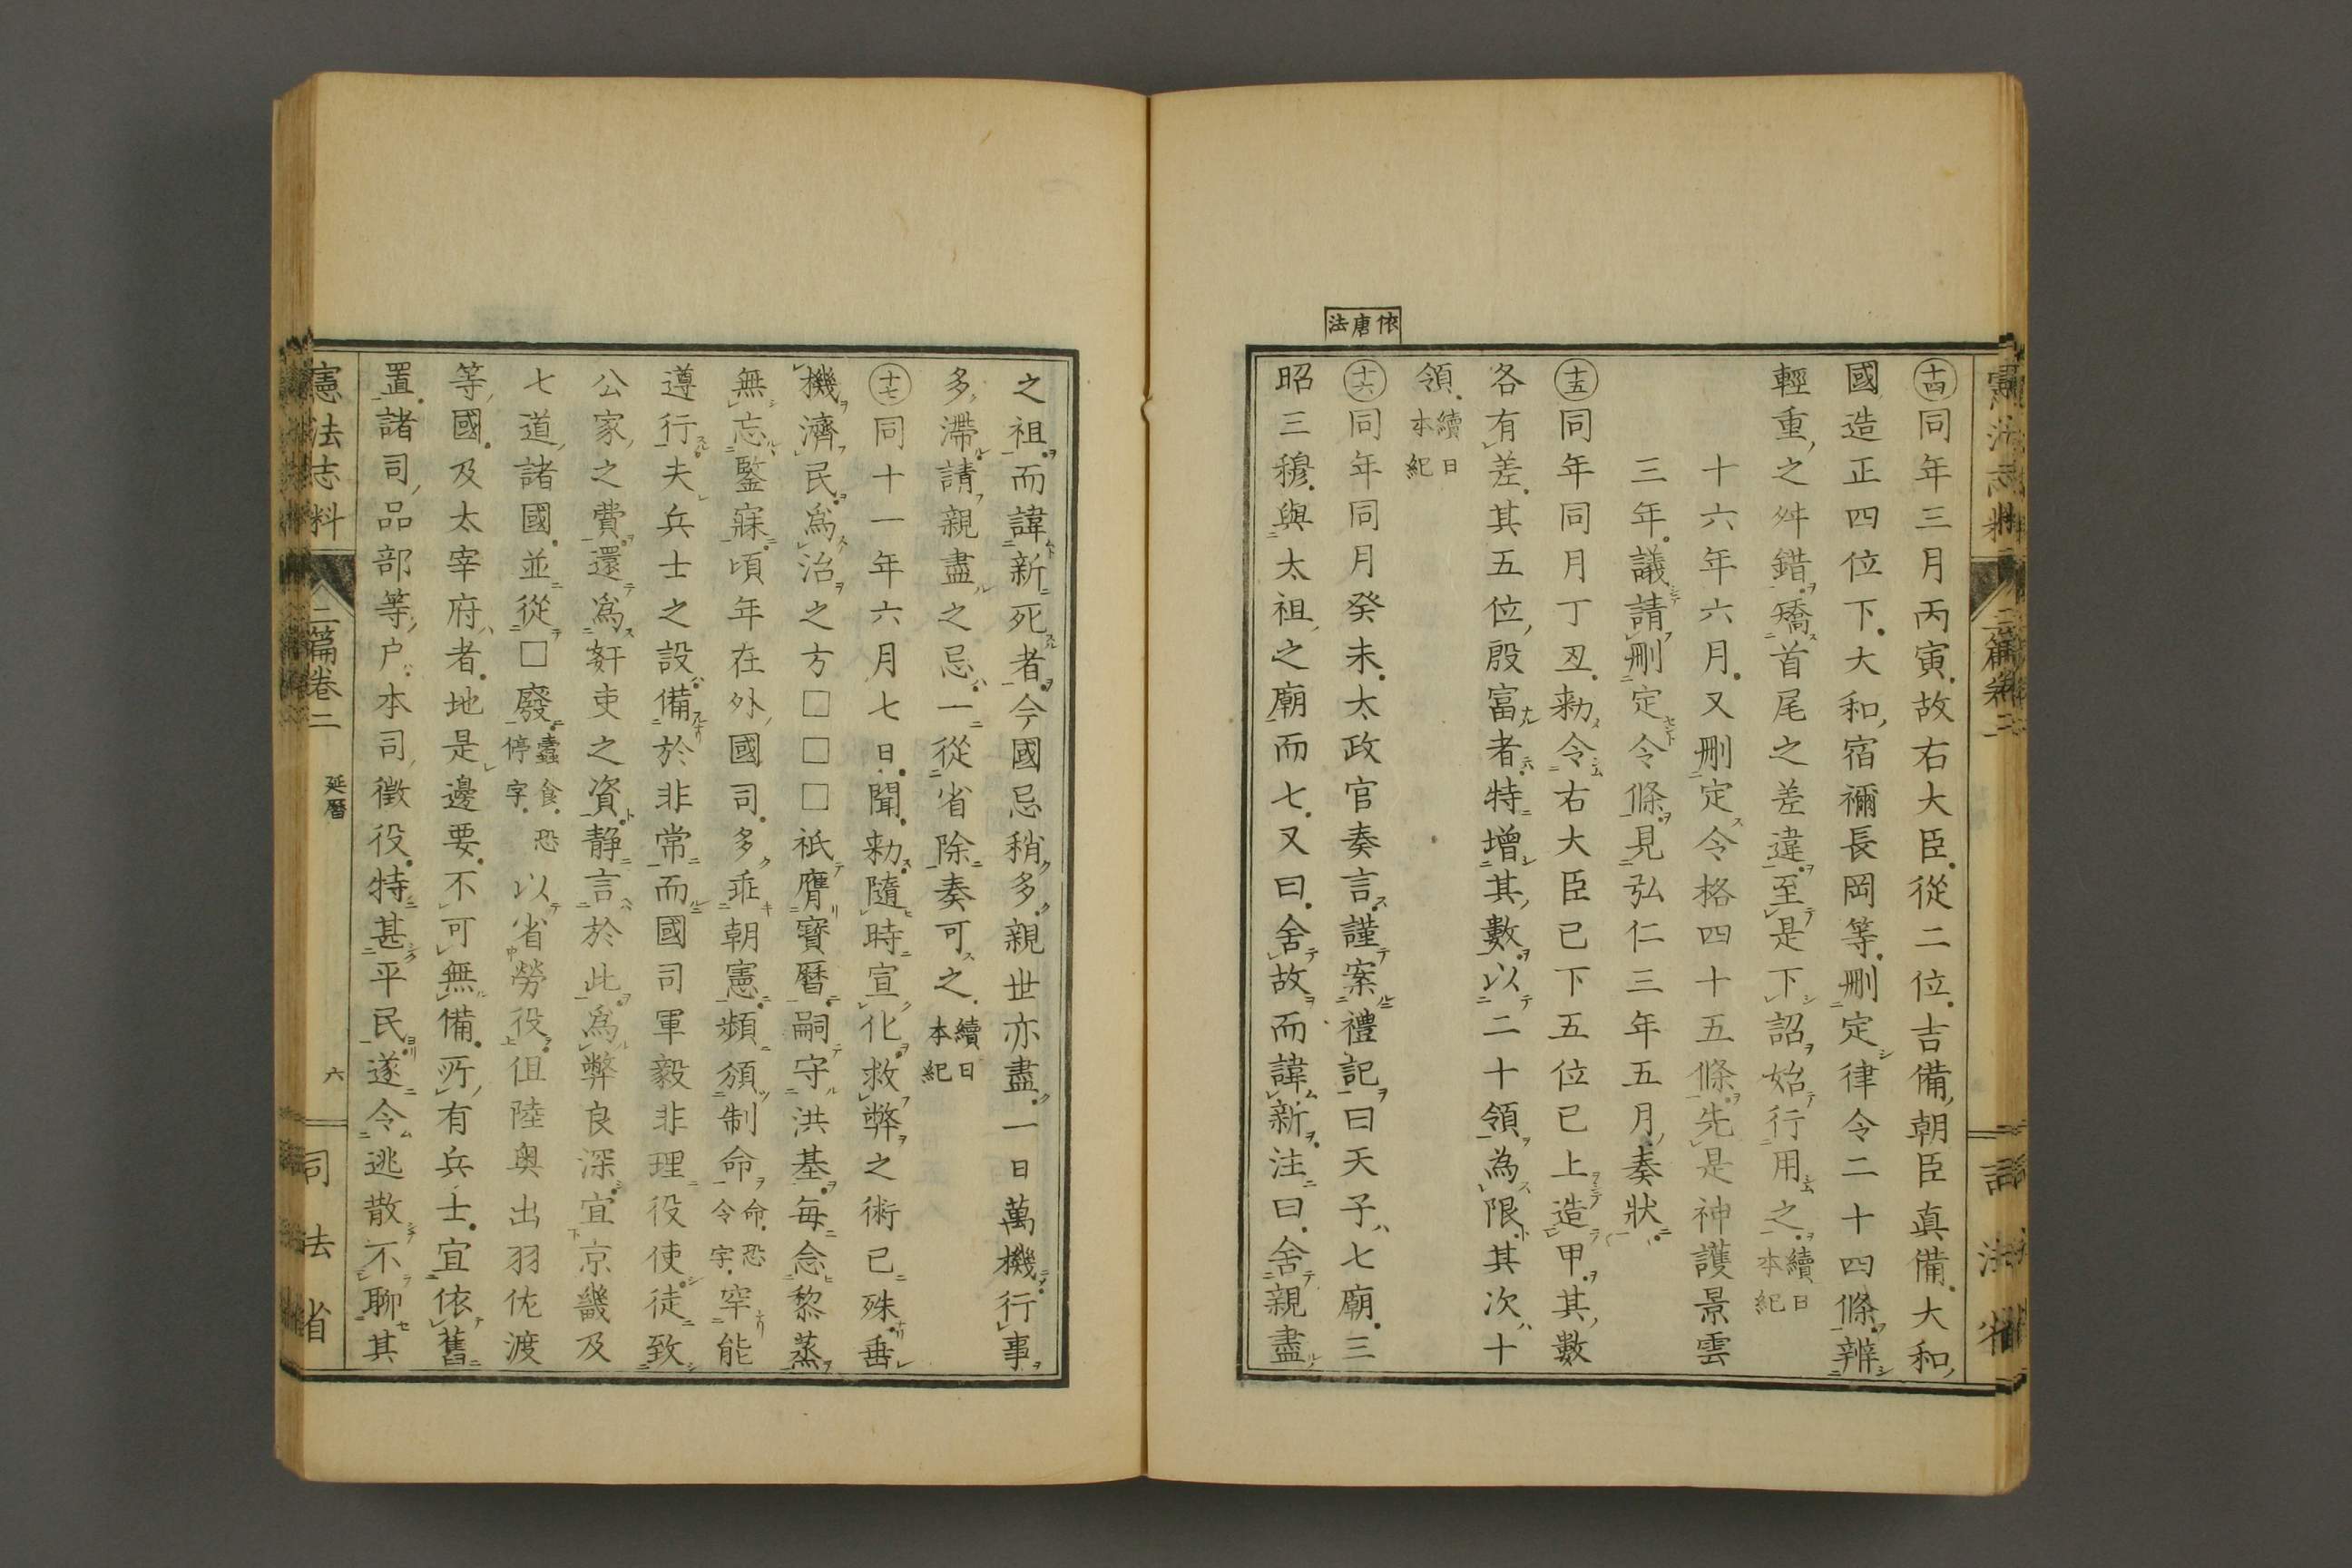 依唐法
十四同年三月丙寅故右大臣從二位吉備朝臣真備大和
國造正四位下大和宿禰長岡等刪定律令二十四條辨
輕重之舛錯矯首尾之差違至是下詔始行用之續日本紀
十六年六月又刪定令格四十五條先是神護景雲
三年議請刪定令條見弘仁三年五月奏狀
十五同年同月丁丑勅令右大臣已下五位已上造甲其數
各有差其五位殷富者特增其數以二十領為限其次十
領續日本紀
十六同年同月癸未太政官奏言謹案禮記曰天子七廟三
昭三穆與太祖之廟而七又曰舍故而諱新注曰舍親盡
之祖而諱新死者今國忌稍多親世亦盡一日萬機行事
多滯請親盡之忌一從省除奏可之續日本紀
十七同十一年六月七日聞勅隨時宣化救弊之術已殊垂
機濟民爲治之方□□□祇膺寶曆嗣守洪基每念黎蒸
無忘鑒寐頃年在外國司多乖朝憲頻頒制命命恐令字罕能
遵行夫兵士之設備於非常而國司軍毅非理役使徒致
公家之費還爲奸吏之資静言於此爲弊良深宜京畿及
七道諸國並從□廢蠹食恐停字以省勞役但陸奥出羽佐渡
等國及太宰府者地是邊要不可無備所有兵士宜依舊
置諸司品部等户本司徵役特甚平民遂令逃散不聊其
憲法志料
二篇卷二
延曆
六
司法省